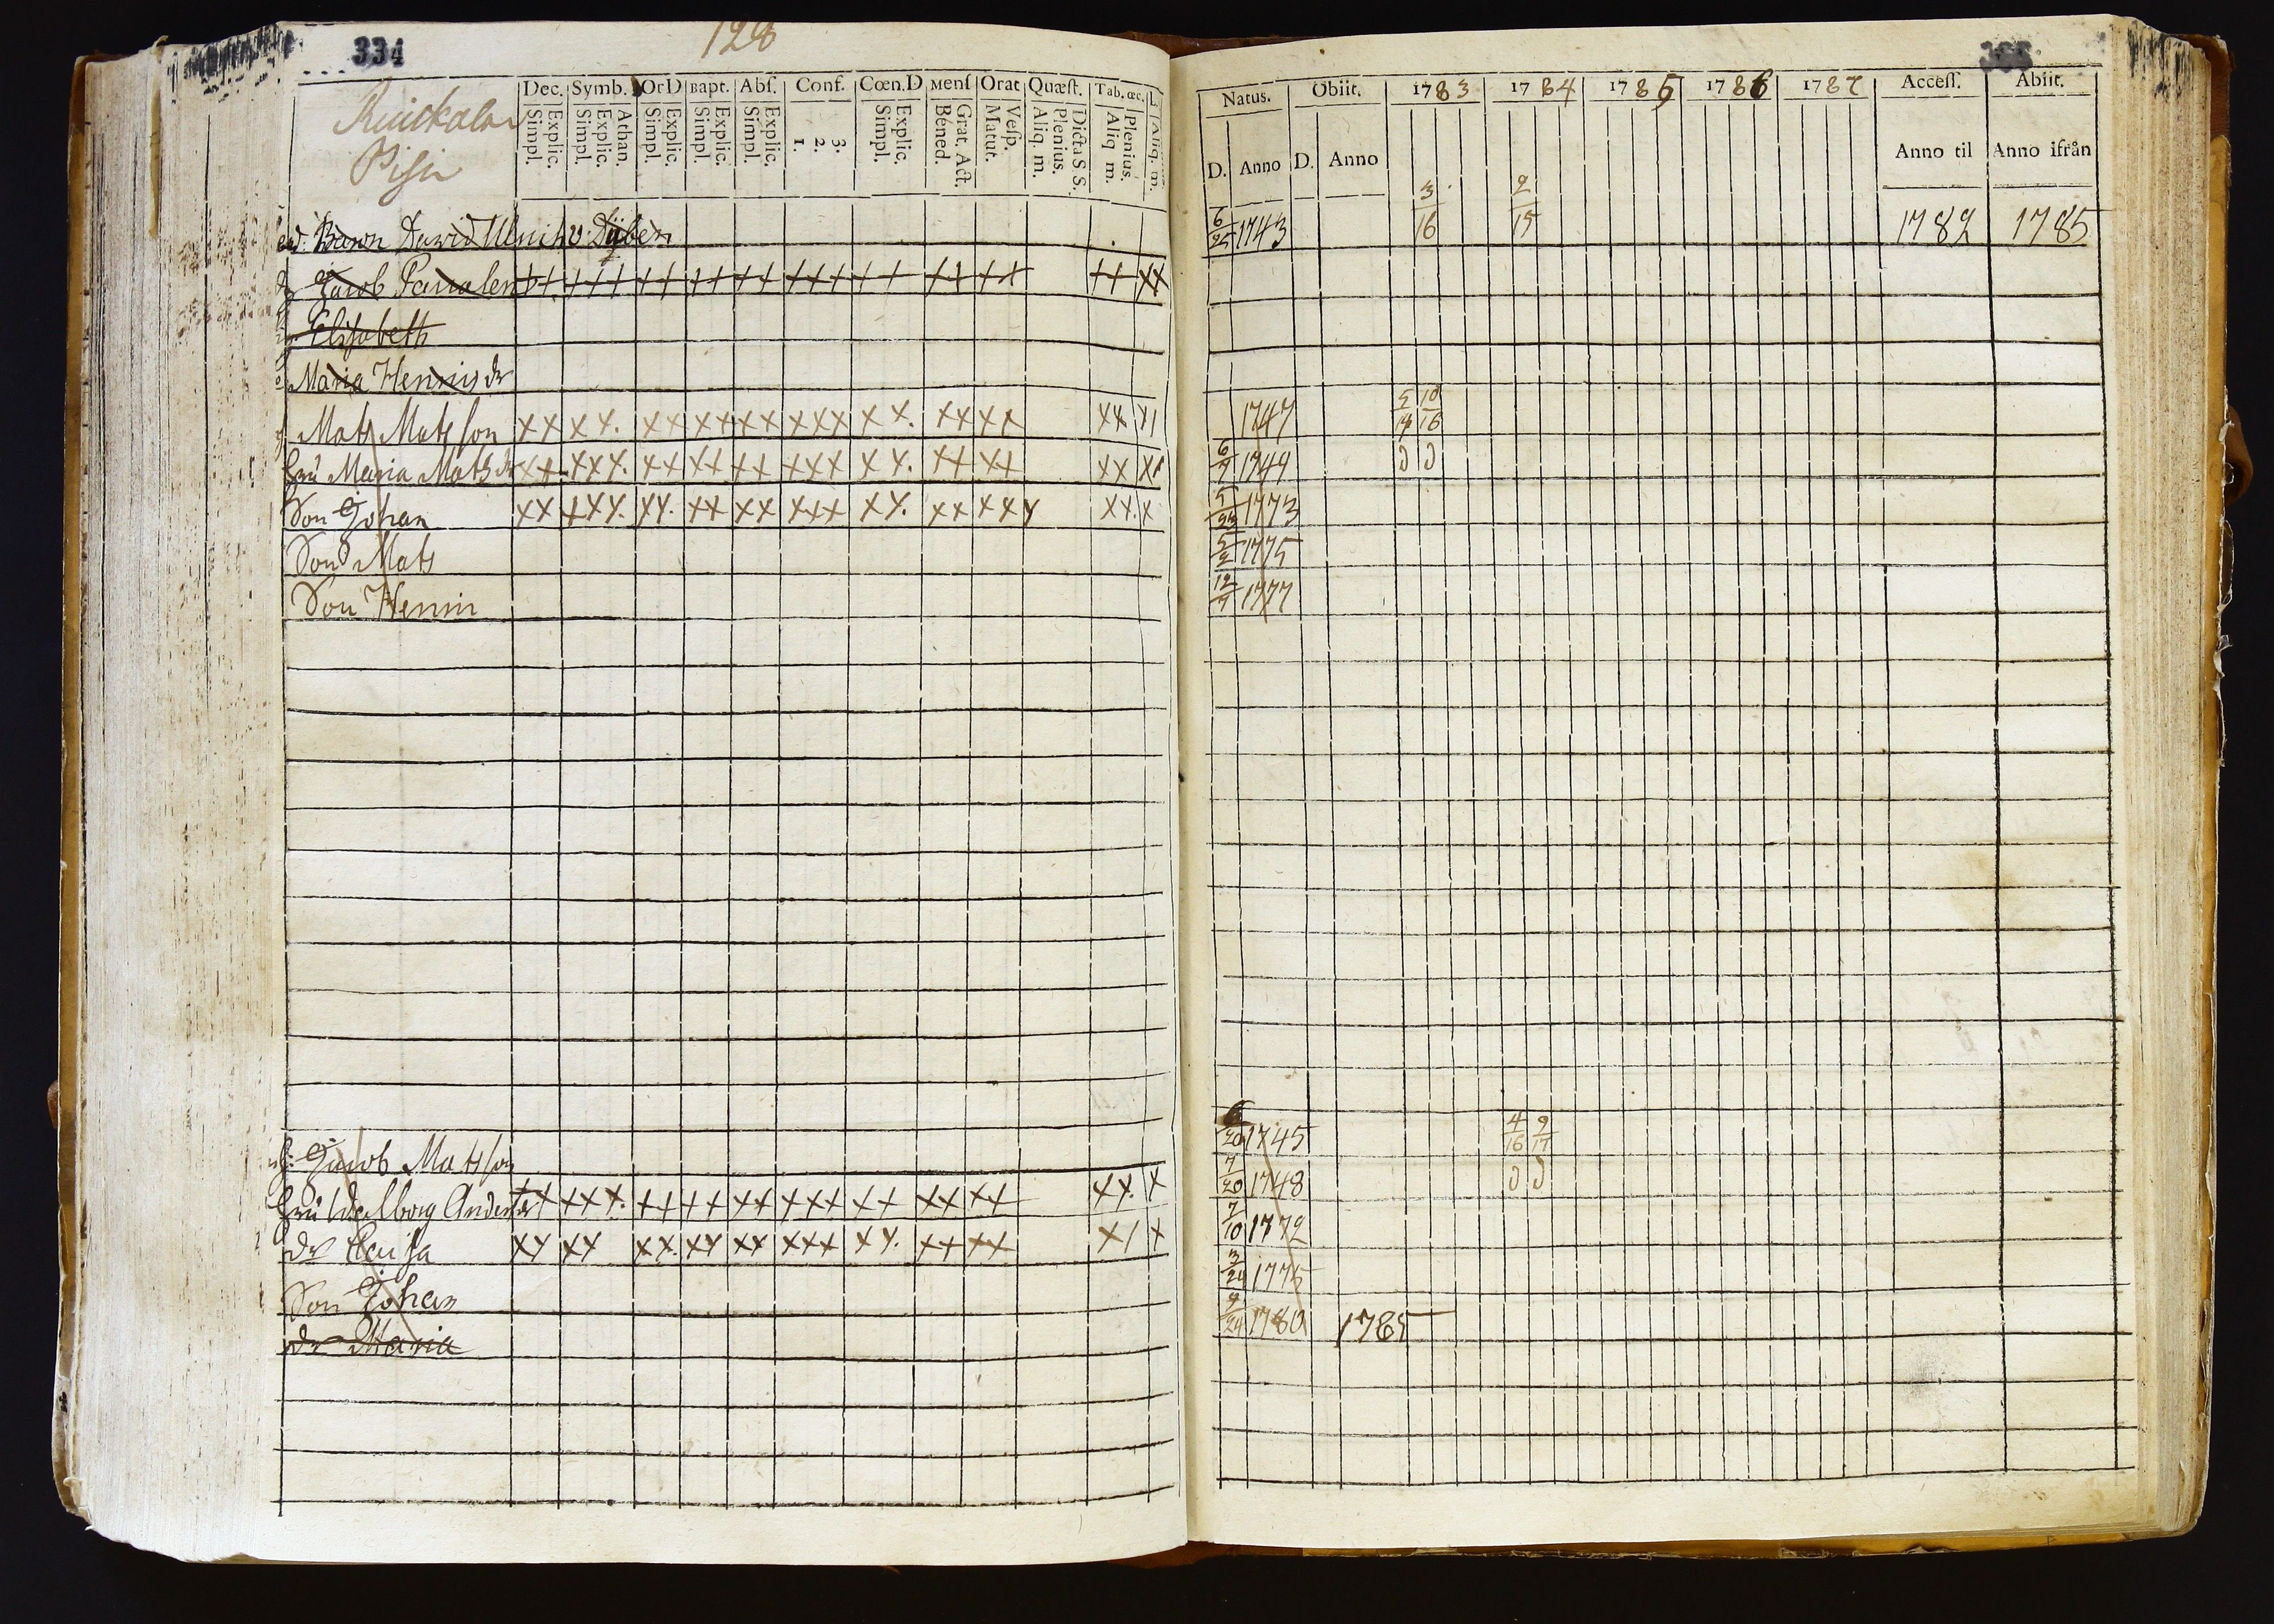 334
128
Dec. Symb. Or D Bapt. Abſ. Conf. Cœn. D Menſ Orat Quæſt. Tab. œc. L.
Explic. Simpl. Athan. Explic. Simpl. Explic. Simpl. Explic. Simpl. Explic. Simpl. 3. 2. 1. Explic. Simpl. Grat. Act. Bened. Veſp. Matut. Dicta S S. Plenius. Aliq. m. Plenius. Aliq m. Aliq. m.
Natus. Obiit. 1783 1784 1785 1786 1787 Acceſſ. Abiit.
D. Anno D. Anno Anno til Anno ifrån
Baron David Ulrich v: Düben 6/25 1743 3/16 9/15 1782 1785
Jacob ++ +++ ++ ++ ++ +++ ++ ++ ++ ++ xx
Elisabeth
Maria Hennis dr
Mats Mats son xx xx. xx xx xx xxx xx. xx xx xx x1 1747 5/14 10/16
hru Maria Mats dr xx xxx. xx xx xx xxx xx. xx xx xx xx 6/9 1749 D D
Son Johan xx xxx. xx. xx xx xxx xx. xx xxx xx. x 5/23 1773
Son Mats 5/2 1775
Son Henric 12/9 1777
Jacob Matsson 6/20 1745 4/16 9/17
hru Walborg Anders dr xx xxx. xx xx xx xxx xx xx xx xx. x 7/20 1748 D D
dr Caisa xx xx xx. xx xx xxx xx. xx xx x1 x 7/10 1772
Son Johan 3/24 1775
dr Maria 9/24 1780 1785